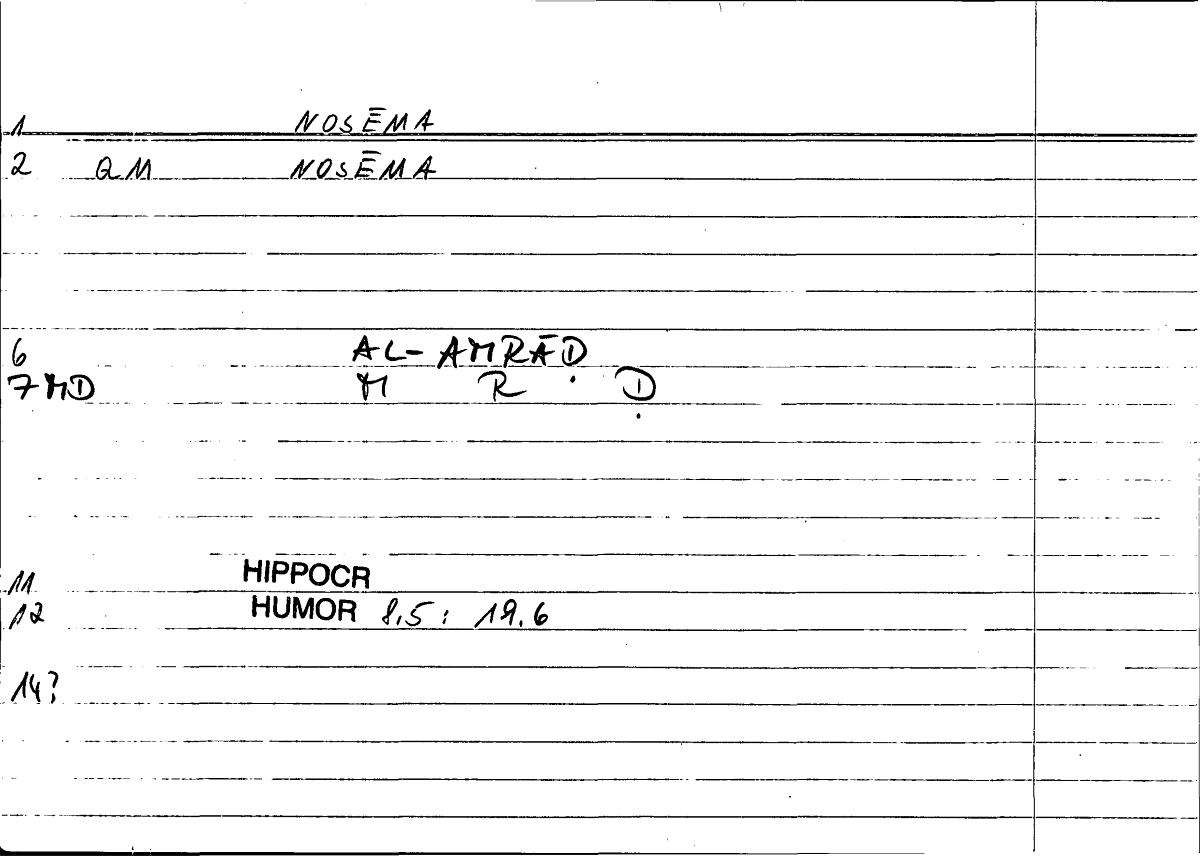 1 NOSĒMA
2 QM NOSĒMA
6 AL-AMRĀḌ
7 MD M R Ḍ
11 HIPPOCR
12 HUMOR 8,5 : 19.6
14?